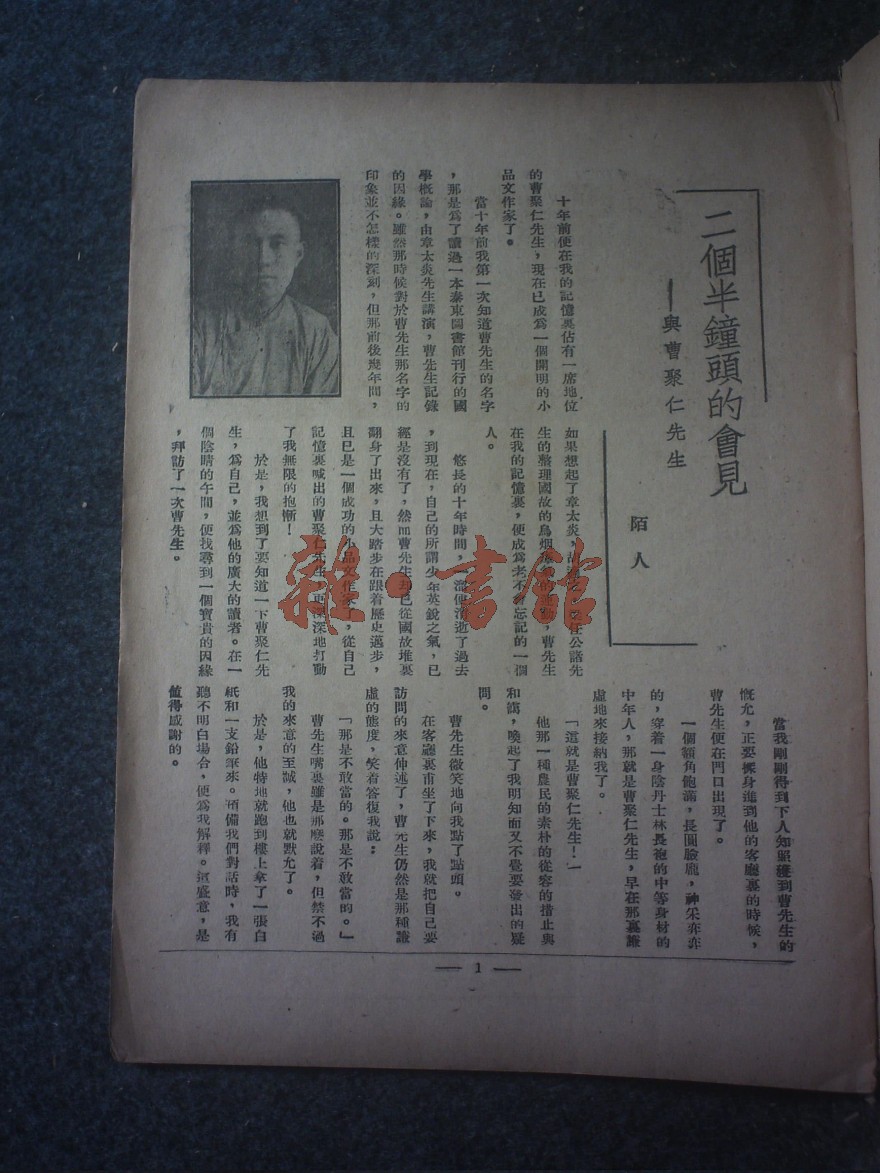 二個半鐘頭的會見
——與曹聚仁先生
陌人
十年前便在我的記憶裏佔有一席地位
的曹聚仁先生，現在已成爲一個開明的小
品文作家了。
當十年前我第一次知道曹先生的名字
，那是爲了讀過一本泰東圖書館刊行的國
學概論，由章太炎先生講演，曹先生記錄
的因緣。雖然那時候對於曹先生那名字的
印象並不怎樣的深刻，但那前後幾年間，
如果想起了章太炎，任公諸先
生的整理國故的烏烟，曹先生
在我的記憶裏，便成爲老不會忘記的一個
人。
悠長的十年時間，消逝了過去
，到現在，自己的所謂少年英銳之氣，已
經是沒有了，然而曹先生却已從國故堆裏
翻身了出來，且大踏步在跟着歷史邁步，
且已是一個成功的小品文作家了，從自己
記憶裏喊出的曹聚仁先生，更深深地打動
了我無限的抱慚！
於是，我想到了要知道一下曹聚仁先
生，爲自己，並爲他的廣大的讀者。在一
個陰晴的午間，便找尋到一個寶貴的因緣
，拜訪了一次曹先生。
當我剛剛得到下人知照纔到曹先生的
慨允，正要操身進到他的客廳裏的時候，
曹先生便在門口出現了。
一個額角飽滿，長圓臉龐，神采奕奕
的，穿着一身陰丹士林長袍的中等身材的
中年人，那就是曹聚仁先生，早在那裏謙
虛地來接納我了。
「這就是曹聚仁先生！」
他那一種農民的素朴的從容的措止與
和藹，喚起了我明知而又不覺要發出的疑
問。
曹先生微笑地向我點了點頭。
在客廳裏甫坐了下來，我就把自己要
訪問的來意伸述了，曹先生仍然是那種謙
虛的態度，笑着答復我說：
「那是不敢當的。那是不敢當的。」
曹先生嘴裏雖是那麼說着，但禁不過
我的來意的至誠，他也就默允了。
於是，他特地就跑到樓上拿了一張白
紙和一支鉛筆來。預備我們對話時，我有
聽不明白場合，便爲我解釋。這盛意，是
值得感謝的。
— 1 —
雜·書館